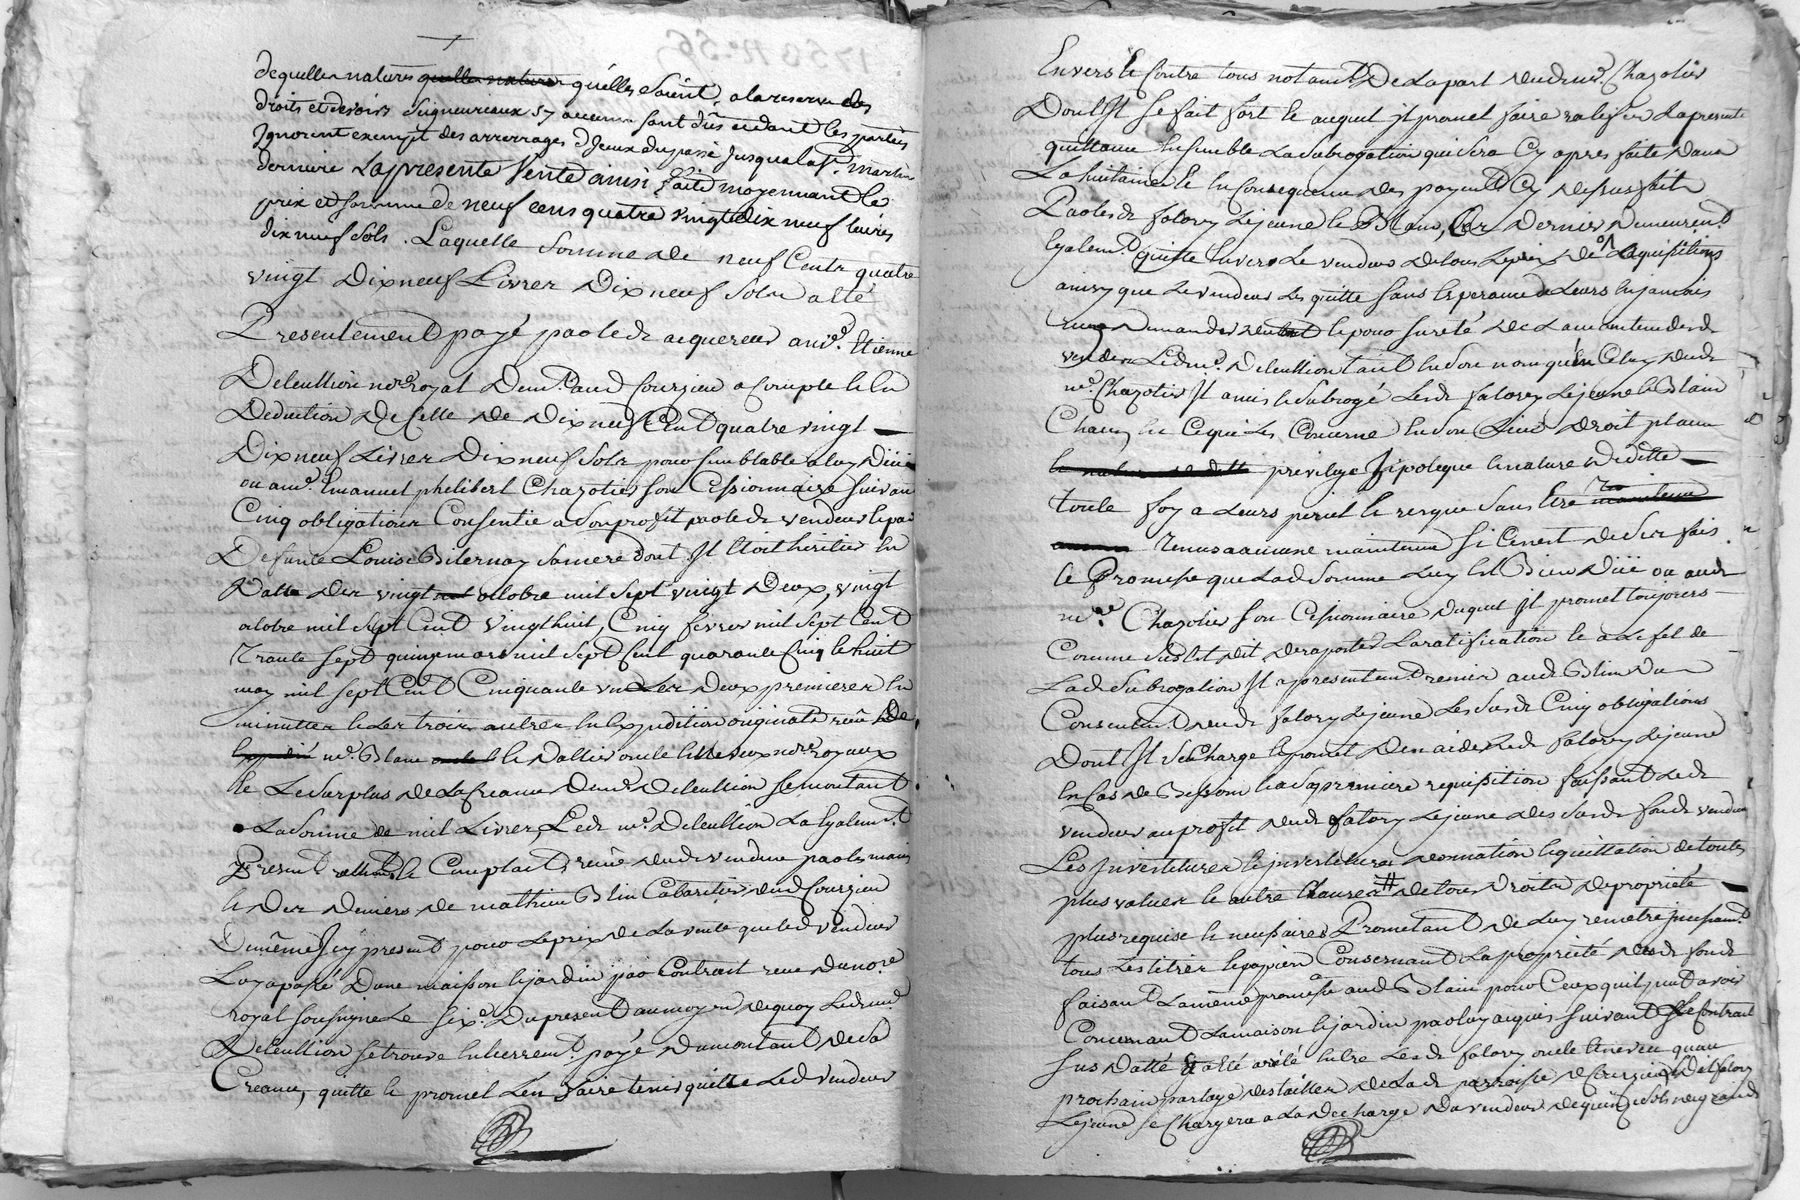 dequelles natures quelles natures qu'elles soient, a la reserve des
droits et devoirs Seigneureaux sy aucuns sont dûs cedant les parties
Ignorent exempt des arrerages d'Iceux du passé jusqua la St. martin
derniere La presente Vente ainsi faite moyennant le
prix et somme de neuf cens quatre vingt dix neuf livres
dix neuf sols. Laquelle somme de neuf Cents quatre
vingt Dix neuf Livres Dix neuf Sols a été
Presentement payé par led acquereur a me. Etienne
Deleullion nore royal Demt. aud Courzieu a Compte et En
Deduction De Celle de Dix neuf Cent quatre vingt
Dix neuf Livres Dix neuf Sols pour semblable a luy Düe
ou a me. Emanuel philibert Chazotier son Cessionnaire suivant
Cinq obligations Consentie a son profit par led vendeur et par
Defunte Louise Biternay sa mere dont Il Etoit heritier en
Datte des vingt octobre mil sept vingt Deux, vingt
octobre mil sept Cent vingt huit, Cinq fevrier mil sept Cent
Trante sept quinze mars mil sept Cent quarante Cinq et huit
may mil sept Cent Cinquante un Les Deux premieres En
minuttes et Les trois autres En Expedition originale reçue De
me. Blanc et Dallier oncle Et neveux nores royaux
et Le Surplus de La Creance dud me Deleullion se montant
La Somme de mil Livres, Led me. Deleullion La Egalemt.
Present Comptant reçüe dud vendeur par les mains
et des Deniers de mathieu Blin Cabaretier aud Courzieu
Du même Icy present pour Le prix de La vente que led vendeur
Luy a passé Dune maison et jardin par Contrat recu du nore
royal soussigné Le six e. Du present au moyen de quoy Led me
Deleullion se trouve Entierremt. payé Du montant de sa
Creance, quitte et promet L'en faire tenir quitte Led vendeur
Envers Et Contre tous notamt De La part dud me. Chazotier
Dont Il se fait fort et auquel Il promet faire ratifier La presente
quittance Ensemble La Subrogation qui sera Cy apres faite Dans
La huitaine Et En Consequence des payemts Cy dessus faits
Par led falovy Lejeune et Blanc, Ces Dernier Demeurent
Egalemt. quitte Envers Le vendeur de tous Le prix de acquisitions
ainsy que Le vendeur Les quitte sans Esperance de Leurs En jamais
rien Demander et pour sureté de La maintenue de
vendeur Led me. Deleullion tant En son nom qu'En Celuy dud
me. Chazotier Il a mis et Subrogé Led falovy Lejeune et Blain
Chacun En Ce qui Les Concerne En son Lieu Droit place
privilege Ipoteque Et nature De dette
toute foy a Leurs peril et risque Sans Etre
Tenus a aucune maintenue Si Ce n'est de Ses fais
et Promesse que Lad Somme Luy Est Bien Düe ou aud
me. Chazotier son Cessionnaire duquel Il promet toujours
Comme Sus Est dit De raporter La ratification et a L'efet de
Lad Subrogation Il a presentement remis aud Blin Du
Consentemt. dud falovy Lejeune Les Susd Cinq obligations
Dont Il se Charge et promet D'en aider Led falovy Lejeune
En Cas de Besoin a sa premiere requisition faisant Led
vendeur au profit dud falovy Lejeune des Susd fonds vendus
Les Investitures et jnvestitures donnation et quittation de toutes
plus values et autre Clauses # de tous Droits de proprieté
plus requise et necessaires Promettant de Luy remettre jncessamt.
tous Les titres et papiers Concernant La proprieté desd fonds
faisant La même promesse aud Blain pour Ceux qu'il peut avoir
Concernant La maison et jardin par luy acquis suivant Le Contrat
Sus Datté Et a été arété Entre Led falovy oncle Et neveu quau
prochain partage des tailles de Lad parroisse de Courzieu Led falovy
Lejeune se Chargera a La Decharge Du vendeur De quinze Sols de grand